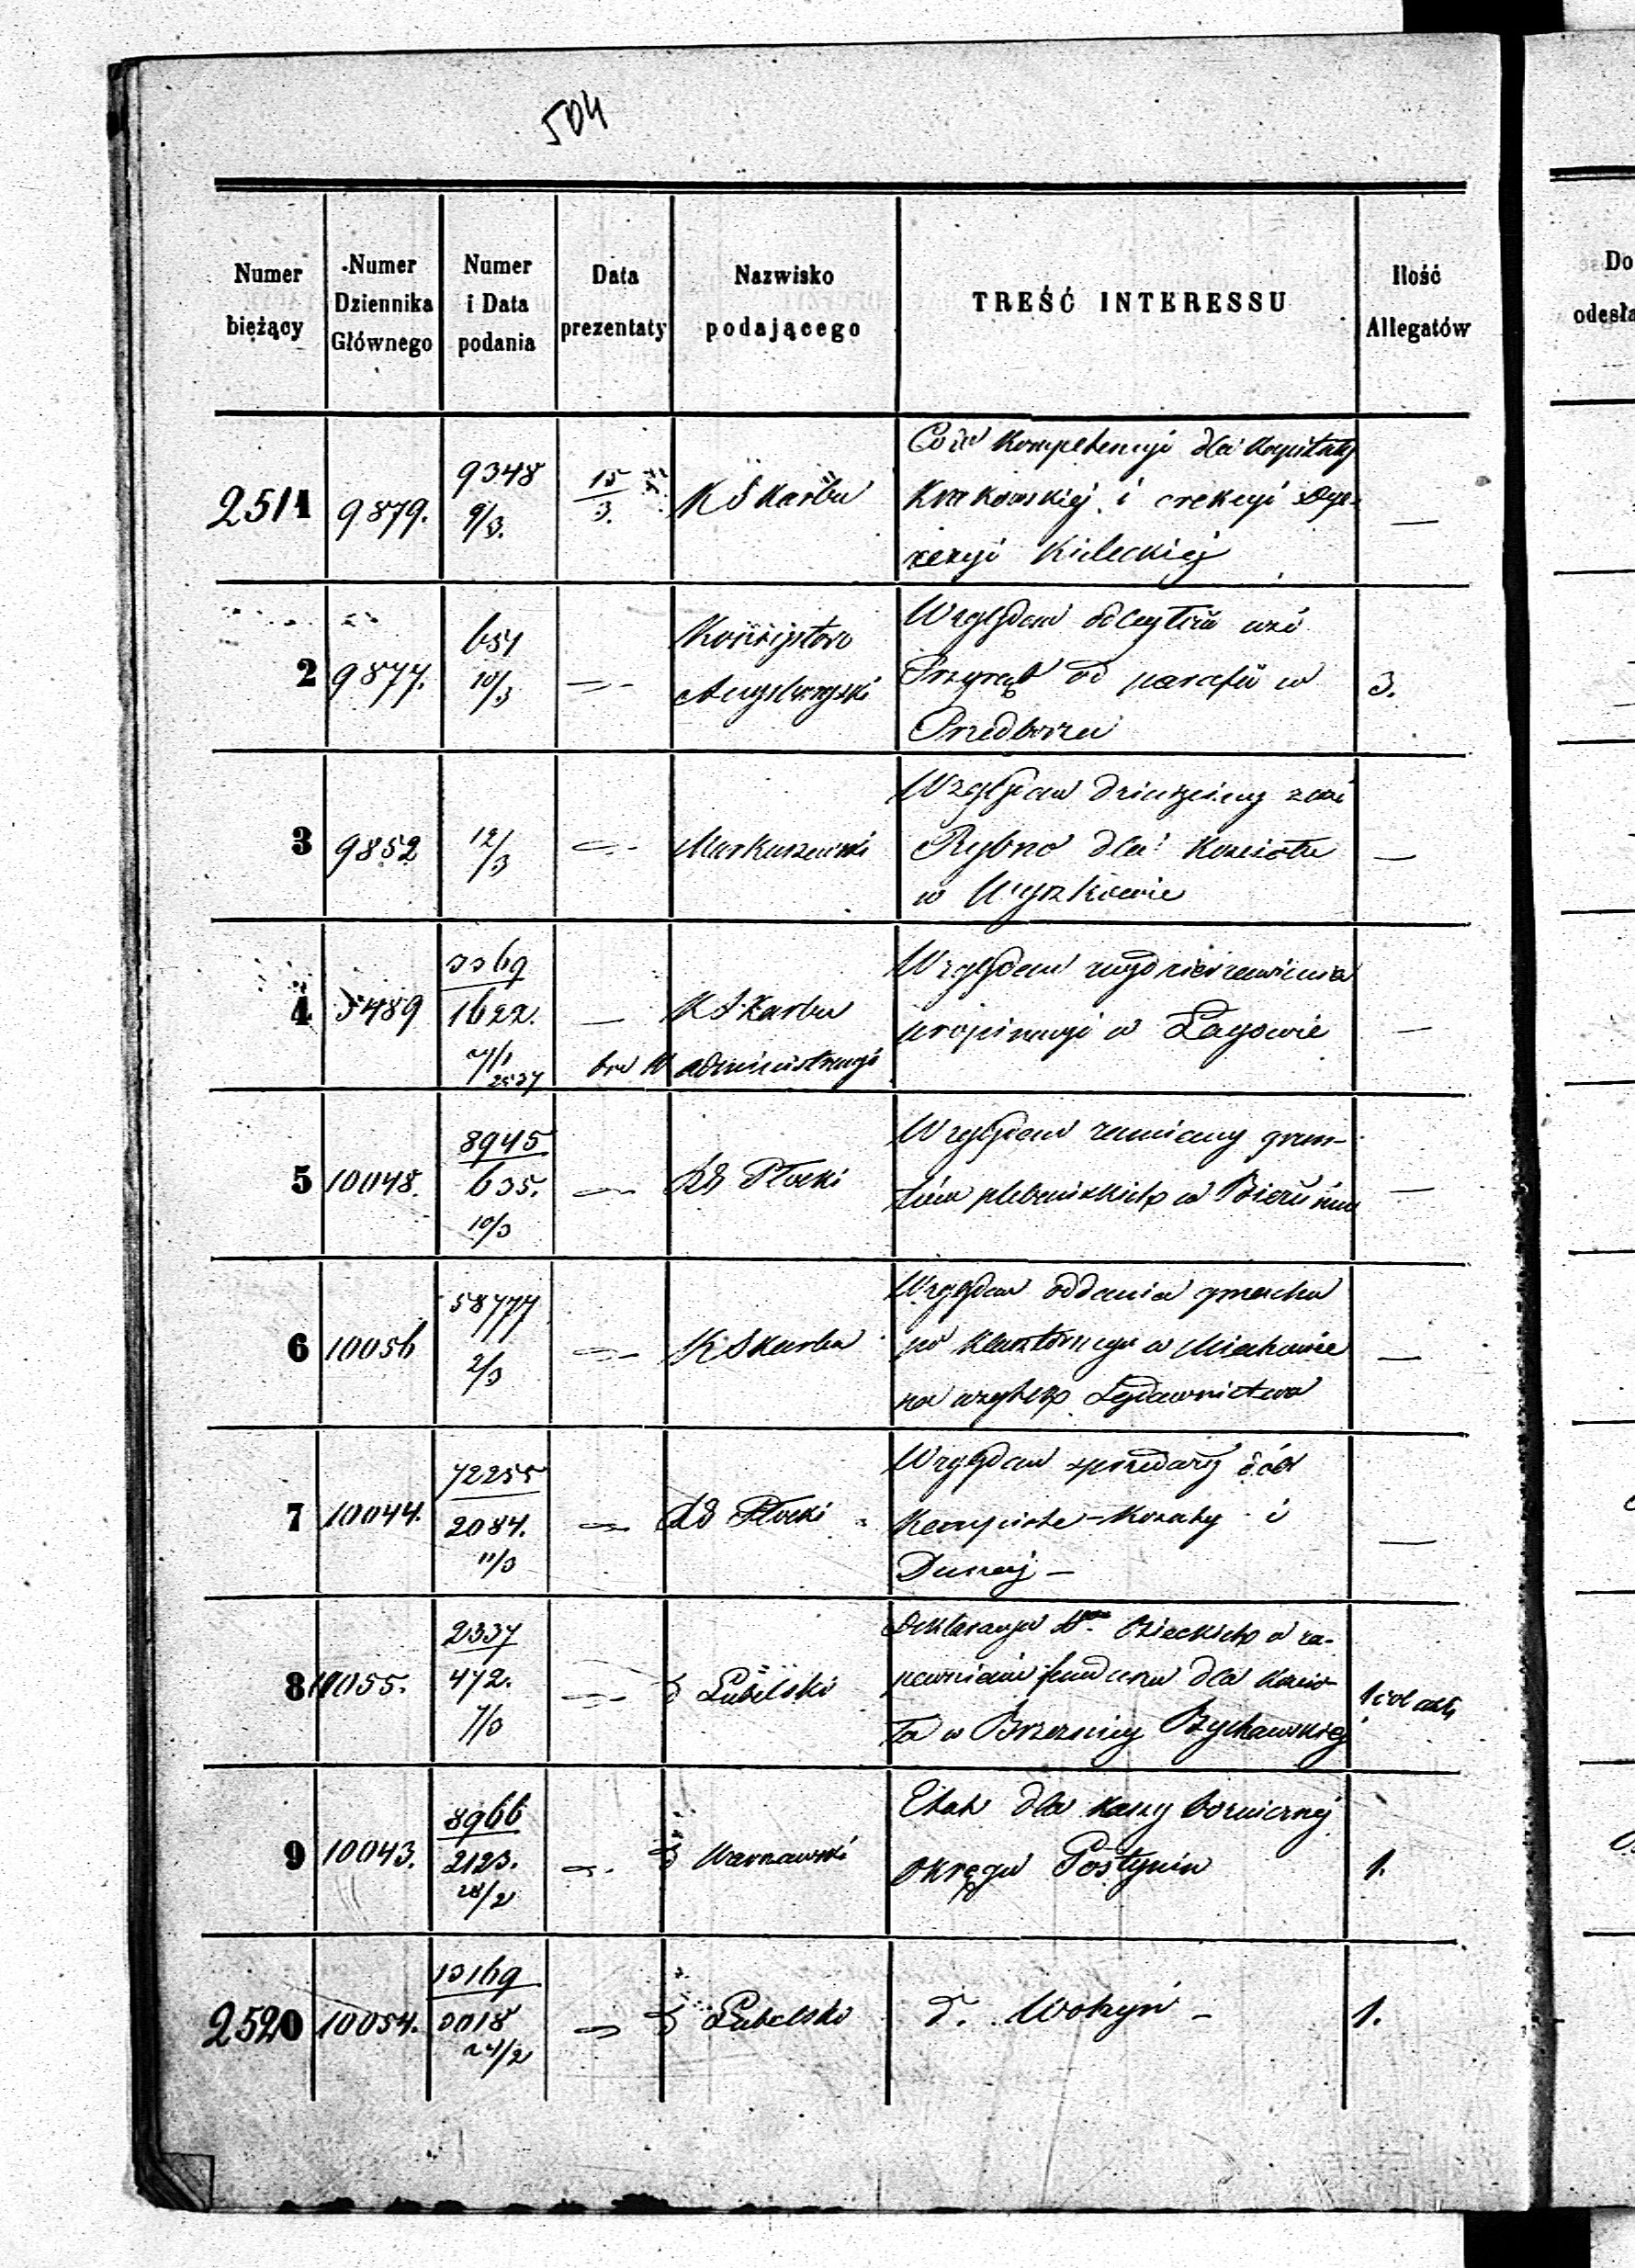 504
Numer bieżący
Numer Dziennika Głównego
Numer i Data podania
Data prezentaty
Nazwisko podającego
TREŚĆ INTERESSU
Ilość Allegatów
Do
odesła
2511
9879.
9348
9/3.
15/3.
K Skarbu
Co do kompetencyi dla kapituły
Krakowskiej i erekcyi Dye-
cezyi Kieleckiej
—
2
9877.
651
10/3
Konsystorz
Względem odłączenia wsi
Przyrąb od parafii w
Przedborzu
3.
3
9852
12/3
Markuszewski
Względem dziesięciny z wsi
Rybno dla Kościoła
w Wyszkowie
—
4
5489
3369
1622.
K Skarbu
administracyi
Względem wydzierżawienia
propinacyi w Łagowie
—
5
10048.
8945
635.
10/3
Rd Płocki
Względem zamiany grun-
tów plebańskich w Bieżuniu
—
6
10056
58777
2/3
K Skarbu
Względem oddania gmachu
po klasztornego w Miechowie
na użytek Sądownictwa
—
7
10044.
72255
2084.
11/3
Rd Płocki
Względem sprzedaży dóbr
Kempiste-Kozaky i
Dunaj —
—
8
10055.
2337
472.
7/3
Lubelski
Deklaracya
w za-
pewnieniu funduszu dla kościo-
ła w Brzeznicy Bychawskiej
1 vol akt
9
10043.
8966
2123.
28/2
Warszawski
Etat dla kassy bożnicznej
okręgu Gostynin
1.
2520
10054.
13169
3018
24/2
Lubelski
d. Wohyń —
1.